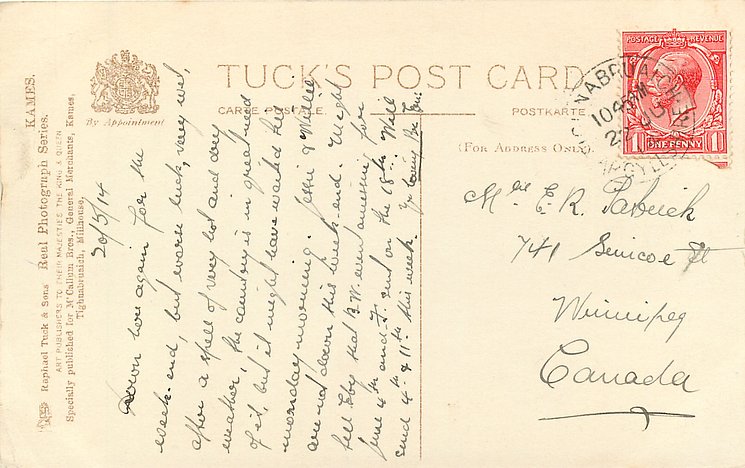 TUCK'S POST CARD
CARTE POSTALE.
POSTKARTE
By Appointment
(FOR ADDRESS ONLY).
POSTAGE REVENUE
ONE PENNY
10 45 AM
ARGYLL
Raphael Tuck & Sons Real Photograph Series. KAMES.
ART PUBLISHERS TO THEIR MAJESTIES THE KING & QUEEN
Specially published for McCallum Bros., General Merchants, Kames,
Tighnabruaich, Millhouse,
20/5/14
Down here again for the
week-end, but worse luck, very wet,
after a spell of very hot and dry
weather, the country is in great need
of it, but it might have waited till
monday morning. & Willie
are not down this week-end. Might
tell that B.W. even amusing for
June 4th and I. sent on the 18th. Will
send 4th & 11th this week.
Mrs E. R.
741 Simcoe St
Winnipeg
Canada